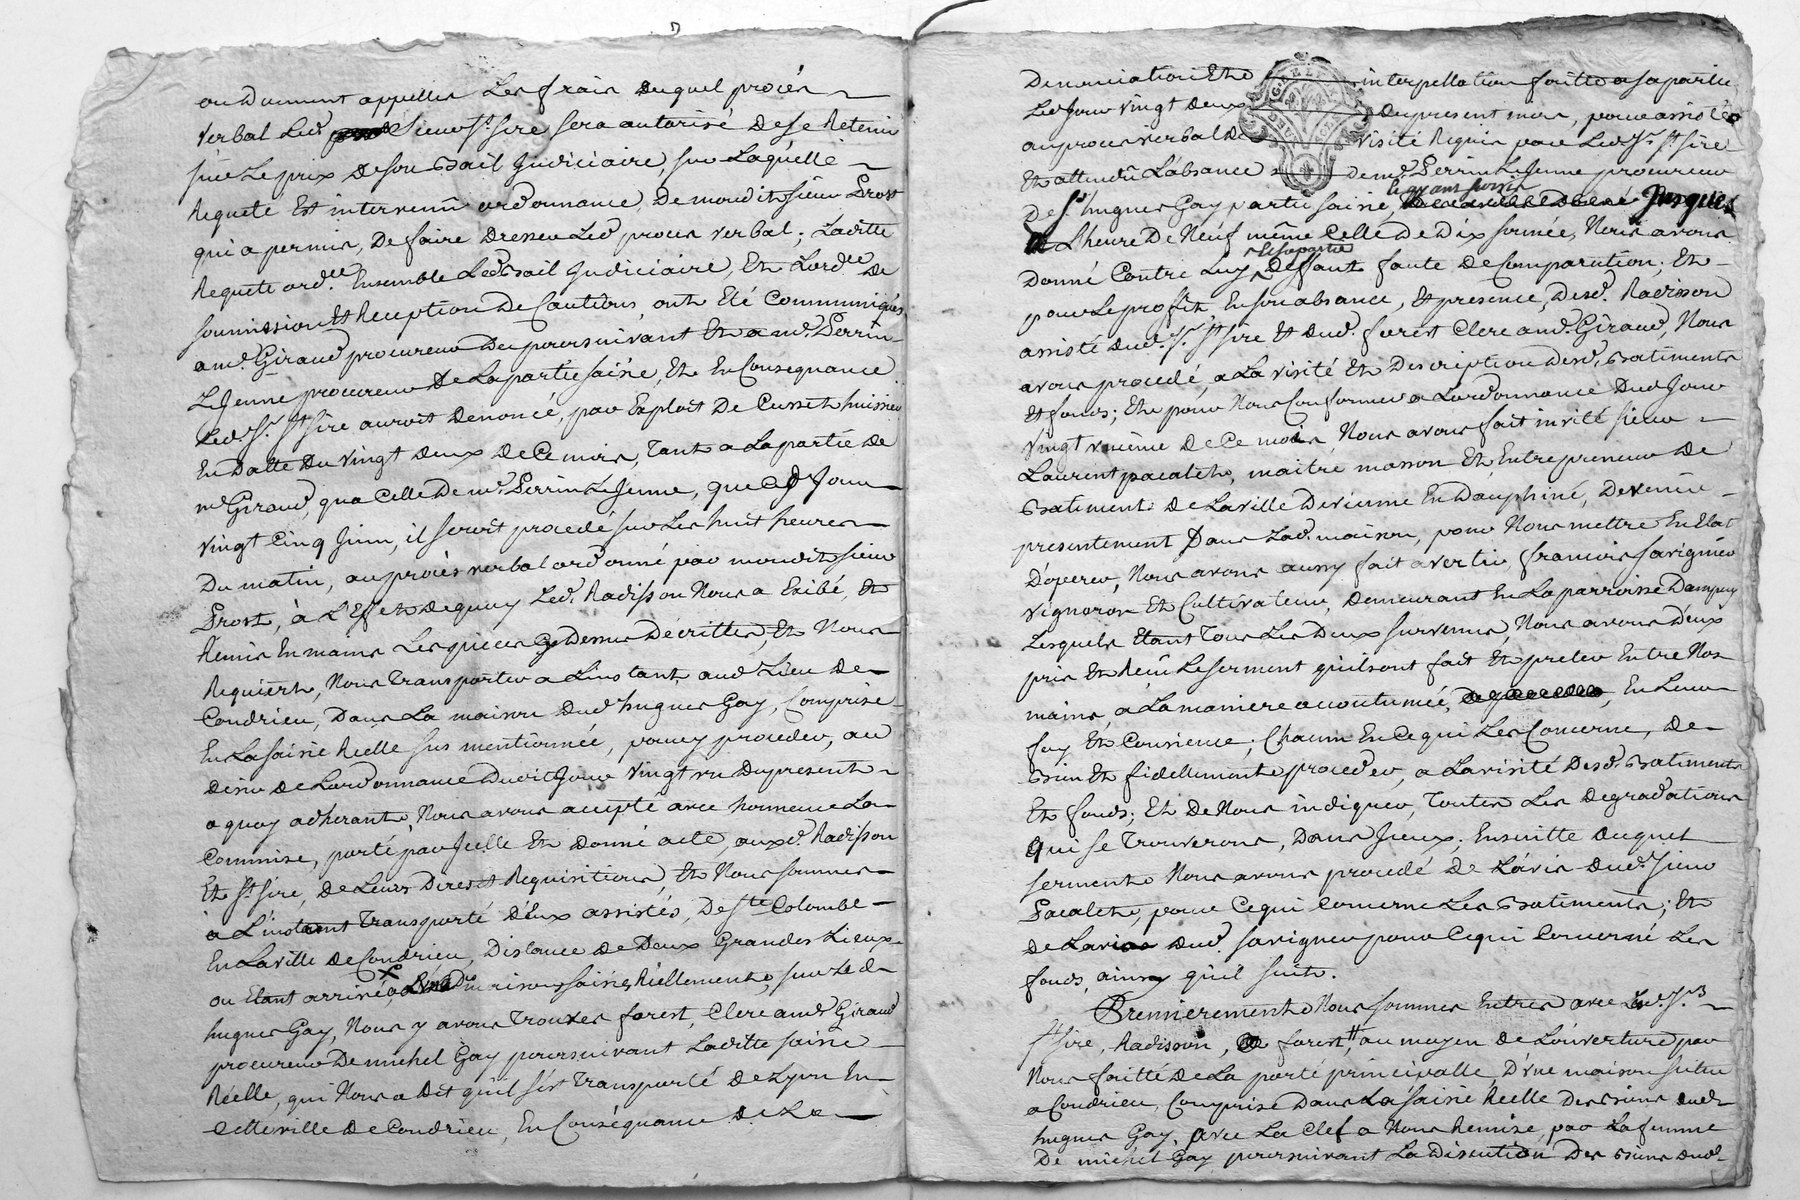 ou Duement appellés Les frais duquel procés
verbal Led. Sieur St. sire sera autorisé de se Retenir
sur Le prix de son Bail Judiciaire, sur Laquelle
Requete Est intervenu ordonnance, De mondit sieur Prost
qui a permis, De faire Dresser Led. proces verbal; Laditte
Requete ord.ce Ensemble Led. Bail Judiciaire, Et Lord.ce De
soumission Et Reception De Cautions ont Eté Communiqués
a me. Giraud procureur Du poursuivant Et a me. Perrin
LeJeune procureur de La partie saisie, Et En Consequance
Led. Sr. St. sire auroit denoncé, par Exploit De Cusset huissier
En Datte Du vingt deux de Ce mois, Tant a La partie De
me. Giraud, qua Celle De me. Perrin LeJeune, que Cejourd
vingt Cinq Juin, il seroit procedé sur Les huit heures
Du matin, au procès verbal ordonné par mondit sieur
Prost, à L'Effet dequoy Led. Radisson Nous a Exibé, Et
Remis En mains Les pieces Cy Dessus Décrittes, Et Nous
Requiert, Nous Transporter a L'instant aud. Lieu De
Condrieu, Dans La maison Dud. hugues Gay, Comprise
En La saisie Réelle sus mentionnée, pour y proceder, au
Desir de Lordonnance Dudit Jour vingt un Du present
a quoy adherant Nous avons accepté avec honneur La
Commise, porté par Icelle Et Donné acte, auxd. Radisson
Et St. sire, de Leurs Dires Et Requisitions Et Nous sommes
à L'instant Transporté d'Eux assistés, De Ste. Colombe
En La ville de Condrieu, Distance de Deux Grandes Lieux
ou Etant arrivé maison saisie Réellement, sur Led.
hugues Gay, Nous y avons Trouvés forest, Clerc a me. Giraud
procureur De michel Gay poursuivant Laditte saisie
Réelle, qui Nous a Dit qu'il s'est Transporté de Lyon En
Cette ville De Condrieu, En Conséquance De La
Denonciation Et interpellation faitte a sa partie
Le Jour vingt deux du present mois, pour assister
au proces verbal De visité Requis par Led. Sr. St. sire
Et attendu L'absance De me. Perrin LeJeune procureur
De Sr. hugues Gay partie saisie, Jusques
a L'heure De Neuf même Celle De Dix sonnée, Nous avons
Et sa partie
Donné Contre Luy Deffaut faute De Comparution; Et
pour Le profit, En son absance, Et presence, Desd. Radisson
assisté dud. Sr. St sire Et dud. forest Clerc a me. Giraud, Nous
avons procedé, a La visité Et Description Desd. Batiments
Et fonds; Et pour Nous Conformer a L'ordonnance Dud Jour
vingt unieme De Ce mois Nous avons fait invité sieur
Laurent pacalet, maitre masson Et Entrepreneur De
Batiments De La ville De vienne En Dauphiné, De venir
presentement Dans Lad. maison, pour Nous mettre En Etat
D'operer, Nous avons aussy fait avertir, francois savignieu
vigneron Et Cultivateur, Demeurant En La parroisse Dampuy
Lesquels Etant Tous Les Deux survenus, Nous avons D'eux
pris Et Reçu Le serment qu'ils ont fait Et preter Entre Nos
mains, a La maniere accoutumée, En Leur
foy Et Consience, Chacun En Ce qui Les Concerne, De
Bien Et fidellement proceder, a La visité Desd. Batiments
Et fonds; Et De Nous indiquer, Toutes Les Degradations
qui se Trouverons, Dans Iceux; Ensuitte duquel
serment Nous avons procedé de L'avis dud. sieur
Pacalet, pour Ce qui Concerne Les Batiments; Et
De L'avis dud. savignieu pour Ce qui Concerne Les
fonds, ainsy qu'il suit.
Premierement Nous sommes Entrés avec Led. Sr.
St sire, Radisson, forest, au moyen de L'ouverture par
Nous faitte de La porte principalle, D'une maison situé
a Condrieu, Comprise Dans La saisie Reelle Des Biens dud.
hugues Gay, avec La Clef a Nous Remise, par La femme
De michel Gay poursuivant La Discution Des Biens dud.